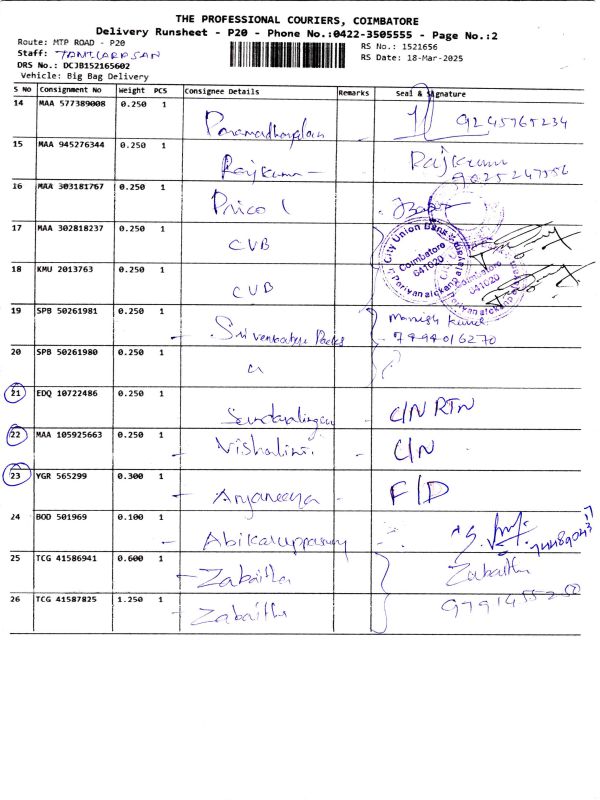 THE PROFESSIONAL COURIERS, COIMBATORE
Delivery Runsheet - P20 - Phone No.:0422-3505555 - Page No.:2
Route: MTP ROAD - P20
RS No.: 1521656
Staff:
RS Date: 18-Mar-2025
DRS No.: DCJB152165602
Vehicle: Big Bag Delivery
S No Consignment No Weight PCS Consignee Details Remarks Seal & Signature
14 MAA 577389008 0.250 1 9245765234
15 MAA 945276344 0.250 1 Rajkumar Rajkumar
16 MAA 303181767 0.250 1 Pricol
17 MAA 302818237 0.250 1 CUB
City Union Bank
Coimbatore
641020
18 KMU 2013763 0.250 1 CUB
Coimbatore
641020
19 SPB 50261981 0.250 1 Sri venkatesh Packs
20 SPB 50261980 0.250 1
21 EDQ 10722486 0.250 1 C/N RTN
22 MAA 105925663 0.250 1 Vishalini C/N
23 YGR 565299 0.300 1 Anjaneeya F/D
24 BOD 501969 0.100 1
25 TCG 41586941 0.600 1 Zabaitha Zabaitha
26 TCG 41587825 1.250 1 Zabaitha